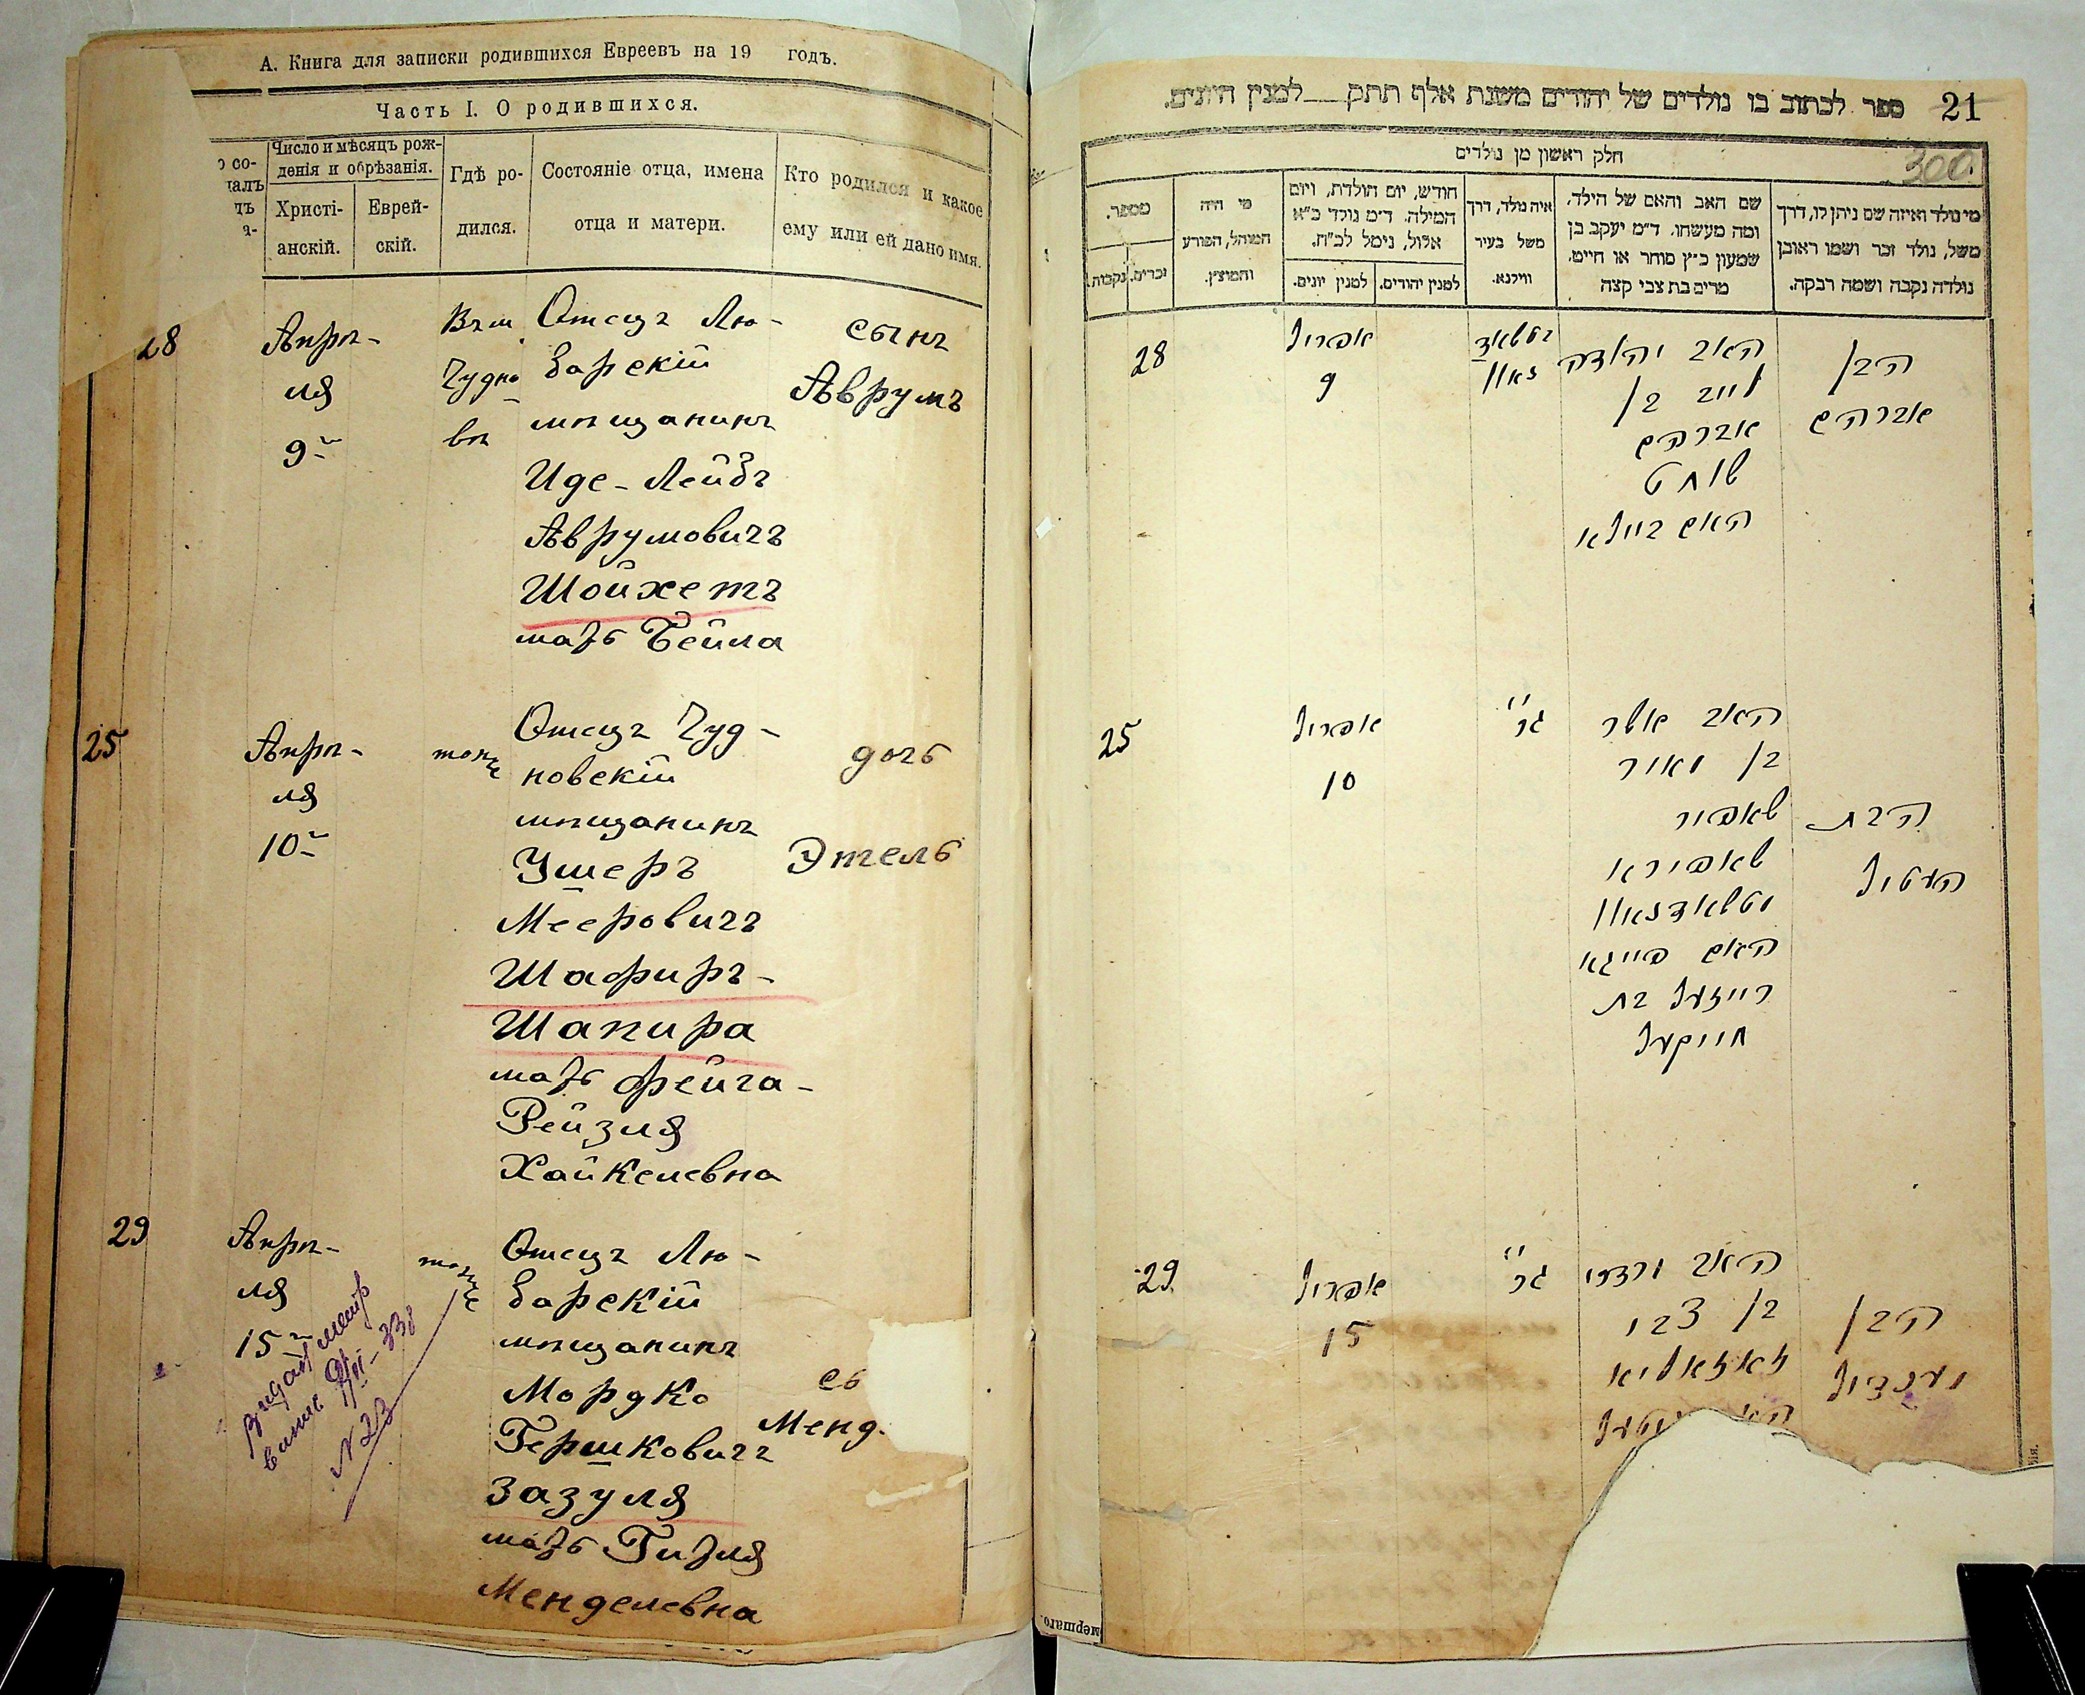 А. Книга для записки родившихся Евреевъ на 19 годъ.
Часть I. О родившихся.
Число и мѣсяцъ рож-
денія и обрѣзанія.
Христі-
анскій.
Еврей-
скій.
Гдѣ ро-
дился.
Состояніе отца, имена
отца и матери.
Кто родился и какое
ему или ей дано имя.
28
Апрѣ-
ля
9
Въ м.
Чудно-
вѣ
Отецъ Лю-
барскій
мѣщанинъ
Иде-Лейбъ
Аврумовичъ
Шойхетъ
мать Бейла
сынъ
Аврумъ
25
Апрѣ-
ля
10
тоже
Отецъ Чуд-
новскій
мѣщанинъ
Ушеръ
Мееровичъ
Шафиръ-
Шапира
мать Фейга-
Рейзля
Хайкелевна
дочь
Этель
29
Апрѣ-
ля
15
тоже
Отецъ Лю-
барскій
мѣщанинъ
Мордко
Гершковичъ
Зазуля
мать Гитля
Менделевна
сы
Менд
N 23
21
ספר לכתוב בו נולדים של יהודים משנת אלף תתק למנין היונים.
300
חלק ראשון מן נולדים
מי נולד ואיזה שם ניתן לו, דרך
משל, נולד זכר ושמו ראובן
נולדה נקבה ושמה רבקה.
שם האב והאם של הילד,
ומה מעשהו. ד״מ יעקב בן
שמעון כ״ץ סוחר או חייט,
מרים בת צבי קצה
איה נולד, דרך
משל בעיר
ווילנא.
חודש, יום הולדת, ויום
המילה. ד״מ נולד כ״א
אלול, נימל לכ״ח.
למנין יהודים.
למנין יונים.
מי היה
המוהל, הפורע
והמוצץ.
מספר.
זכרים.
נקבות.
28
אפריל
9
האב יהודה
לייב בן
אברהם
שוחט
האם ביילא
הבן
אברהם
25
אפריל
10
גר״
האב אשר
בן מאיר
שאפיר
שאפירא
האם פייגא
רייזעל בת
חייקעל
הבת
העטיל
29
אפריל
15
גר״
האב מרדכי
בן צבי
זאזאליא
הבן
מענדיל